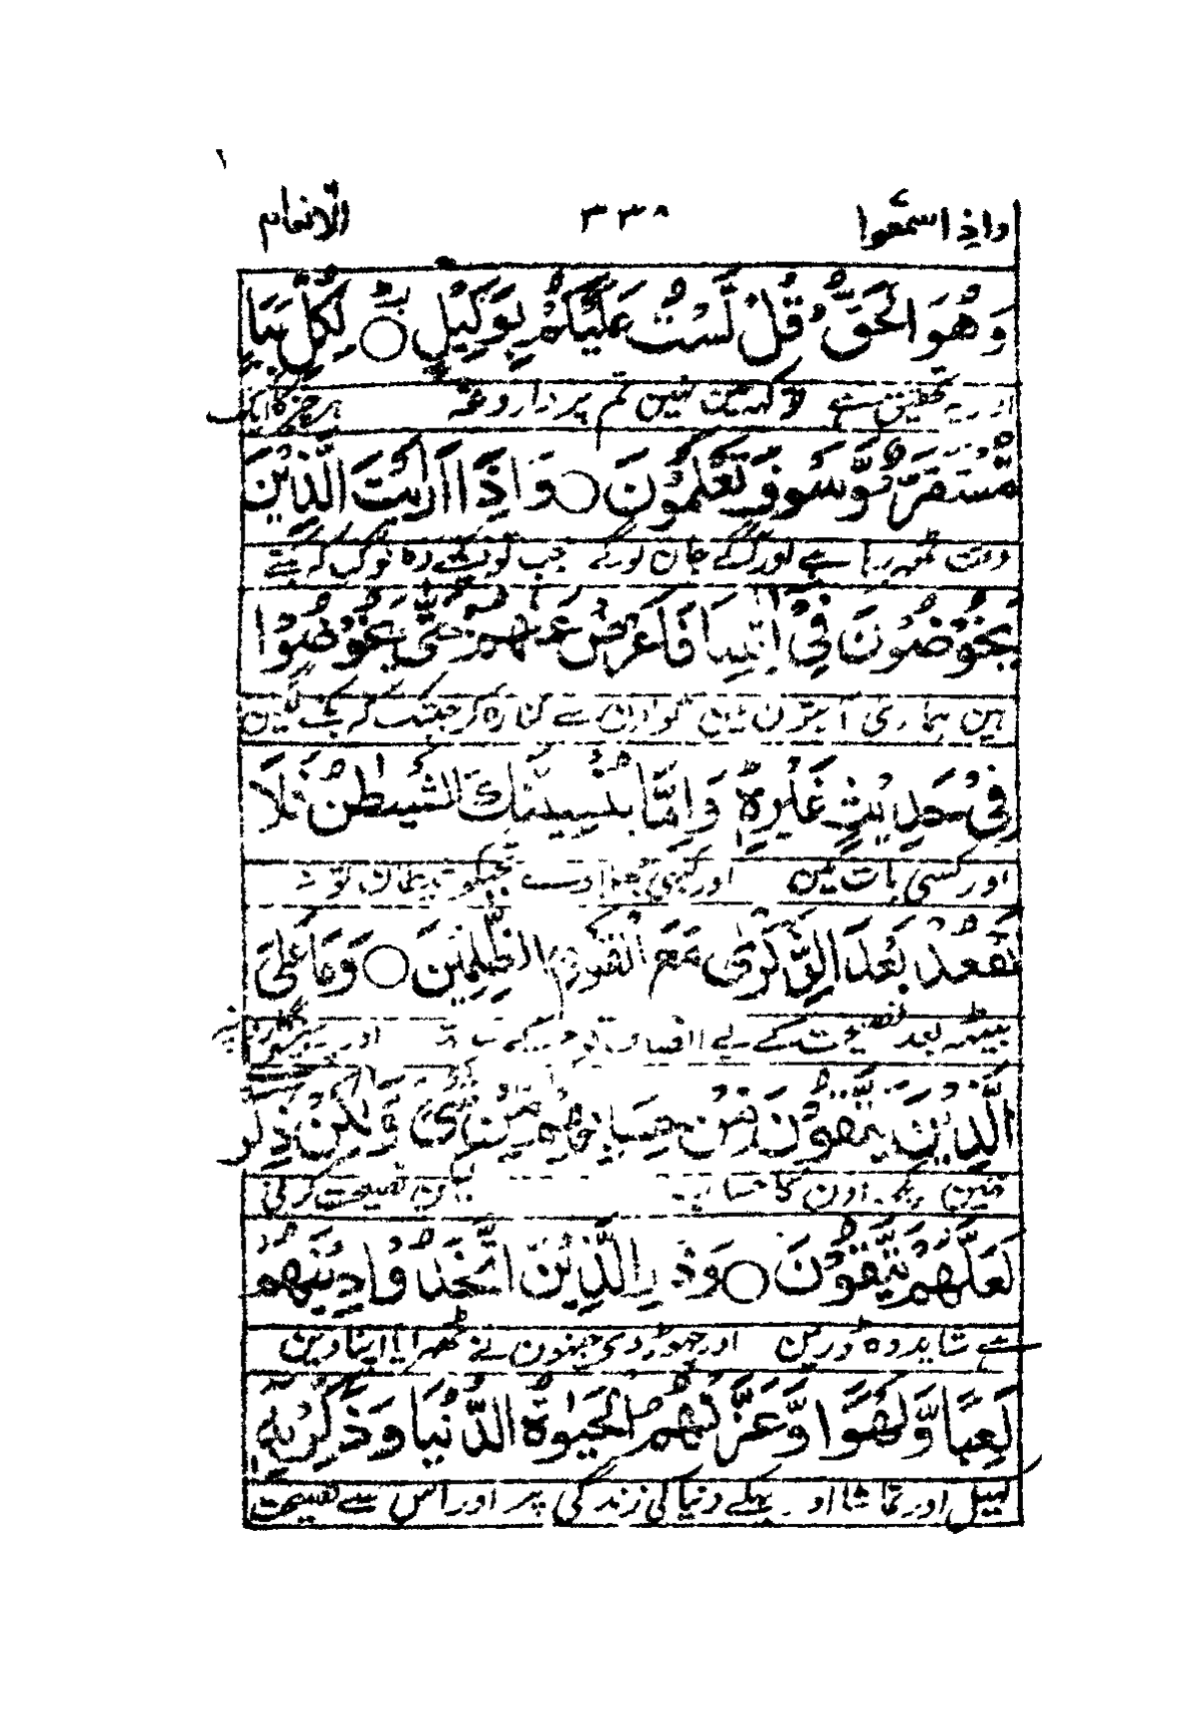 واذا سمعوا ٣٣٨ الانعام
وَهُوَ الْحَقُّ قُلْ لَّسْتُ عَلَيْكُمْ بِوَكِيْلٍ ○ لِكُلِّ نَبَاٍ
اور یہ تحقیق ہے تو کہہ مین نہین تم پر داروغہ ہر چیز کا ایک
مُّسْتَقَرٌّ وَّسَوْفَ تَعْلَمُوْنَ ○ وَاِذَا رَاَيْتَ الَّذِيْنَ
وقت ٹھہر رہا ہے اور آگے جان لوگے جب تو دیکھے وہ لوگ کہ بکتے
يَخُوْضُوْنَ فِيْ اٰيٰتِنَا فَاَعْرِضْ عَنْهُمْ حَتّٰى يَخُوْضُوْا
ہین ہماری آیتون مین تو اون سے کنارہ کر جبتک کہ بکنے لگین
فِيْ حَدِيْثٍ غَيْرِهٖ وَاِمَّا يُنْسِيَنَّكَ الشَّيْطٰنُ فَلَا
اور کسی بات مین اور کبھی بھلا دے تجھکو شیطان تو نہ
تَقْعُدْ بَعْدَ الذِّكْرٰى مَعَ الْقَوْمِ الظّٰلِمِيْنَ ○ وَمَا عَلَى
بیٹھہ بعد نصیحت کے بے انصاف قوم کے ساتھ اور پرہیزگارون پر
الَّذِيْنَ يَتَّقُوْنَ مِنْ حِسَابِهِمْ مِّنْ شَيْءٍ وَّلٰكِنْ ذِكْرٰى
نہین کچھ اون کا حساب لیکن نصیحت کرنی
لَعَلَّهُمْ يَتَّقُوْنَ ○ وَذَرِ الَّذِيْنَ اتَّخَذُوْا دِيْنَهُمْ
ہے شاید وہ ڈرین اور چھوڑ دے جنہون نے ٹھہرایا اپنا دین
لَعِبًا وَّلَهْوًا وَّغَرَّتْهُمُ الْحَيٰوةُ الدُّنْيَا وَذَكِّرْ بِهٖٓ
کھیل اور تماشا اور بہکے دنیا کی زندگی پر اور اس سے نصیحت